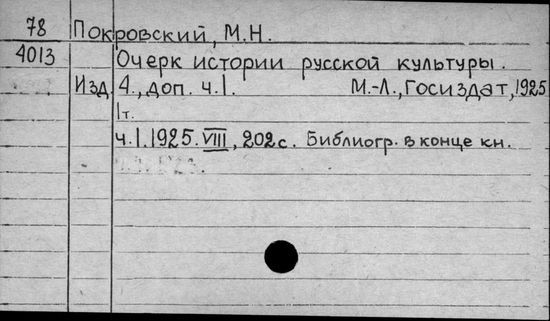 78 Покровский, М.Н.
4013 Очерк истории русской культуры.
Изд. 4., доп. ч.1. М.-Л., Госиздат, 1925
1т.
ч.1.1925. VIII, 202 с. Библиогр. в конце кн.